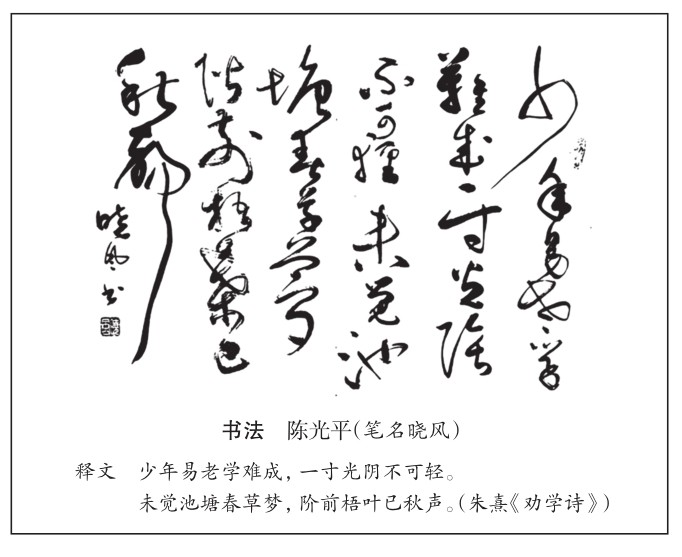 少年易老学
難成一寸光陰
不可輕未覺池
塘春草夢
階前梧葉已
秋聲
晓风书
书法 陈光平(笔名晓风)
释文 少年易老学难成，一寸光阴不可轻。
未觉池塘春草梦，阶前梧叶已秋声。(朱熹《劝学诗》)